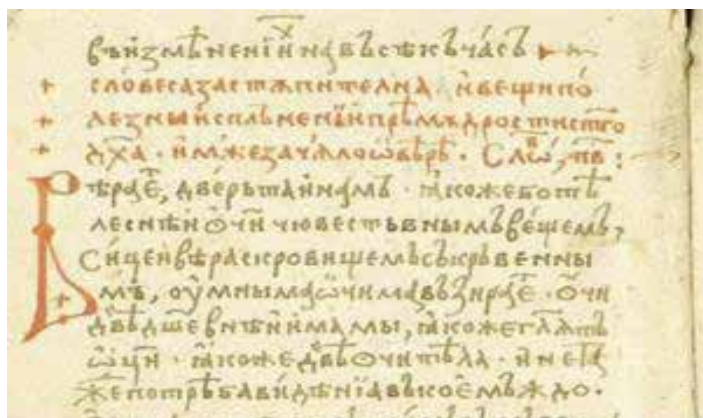 въ измѣненїи҆х на въсѣкъ ча́съ
словеса застѫпителнаа и҆ вещи по
лезны и҆спльнении҆ прѣмѫдрости ст҃го
дх҃а · и҆мже зачѧло ѡ҆ вѣрѣ · Сло́во, ·
Вѣра е҆, две́рь таи́намъ · ꙗ҆коже бо тѣ
леснѣи ѻ҆чи чювестьвнымъ ве́щемъ,
Си́це и҆ вѣра скровищемъ съкръвенны
мъ, оу҆мныма ѡ҆чима възирае · Ѻ҆чи
двѣ дш҃евнѣи и҆мамы, ꙗ҆коже гл҃ѧтъ
ѡ҆ци · ꙗ҆коже двѣ ѻ҆чи тѣла · и҆ не
же потрѣба видѣнїа въ коем҆ъждо ·